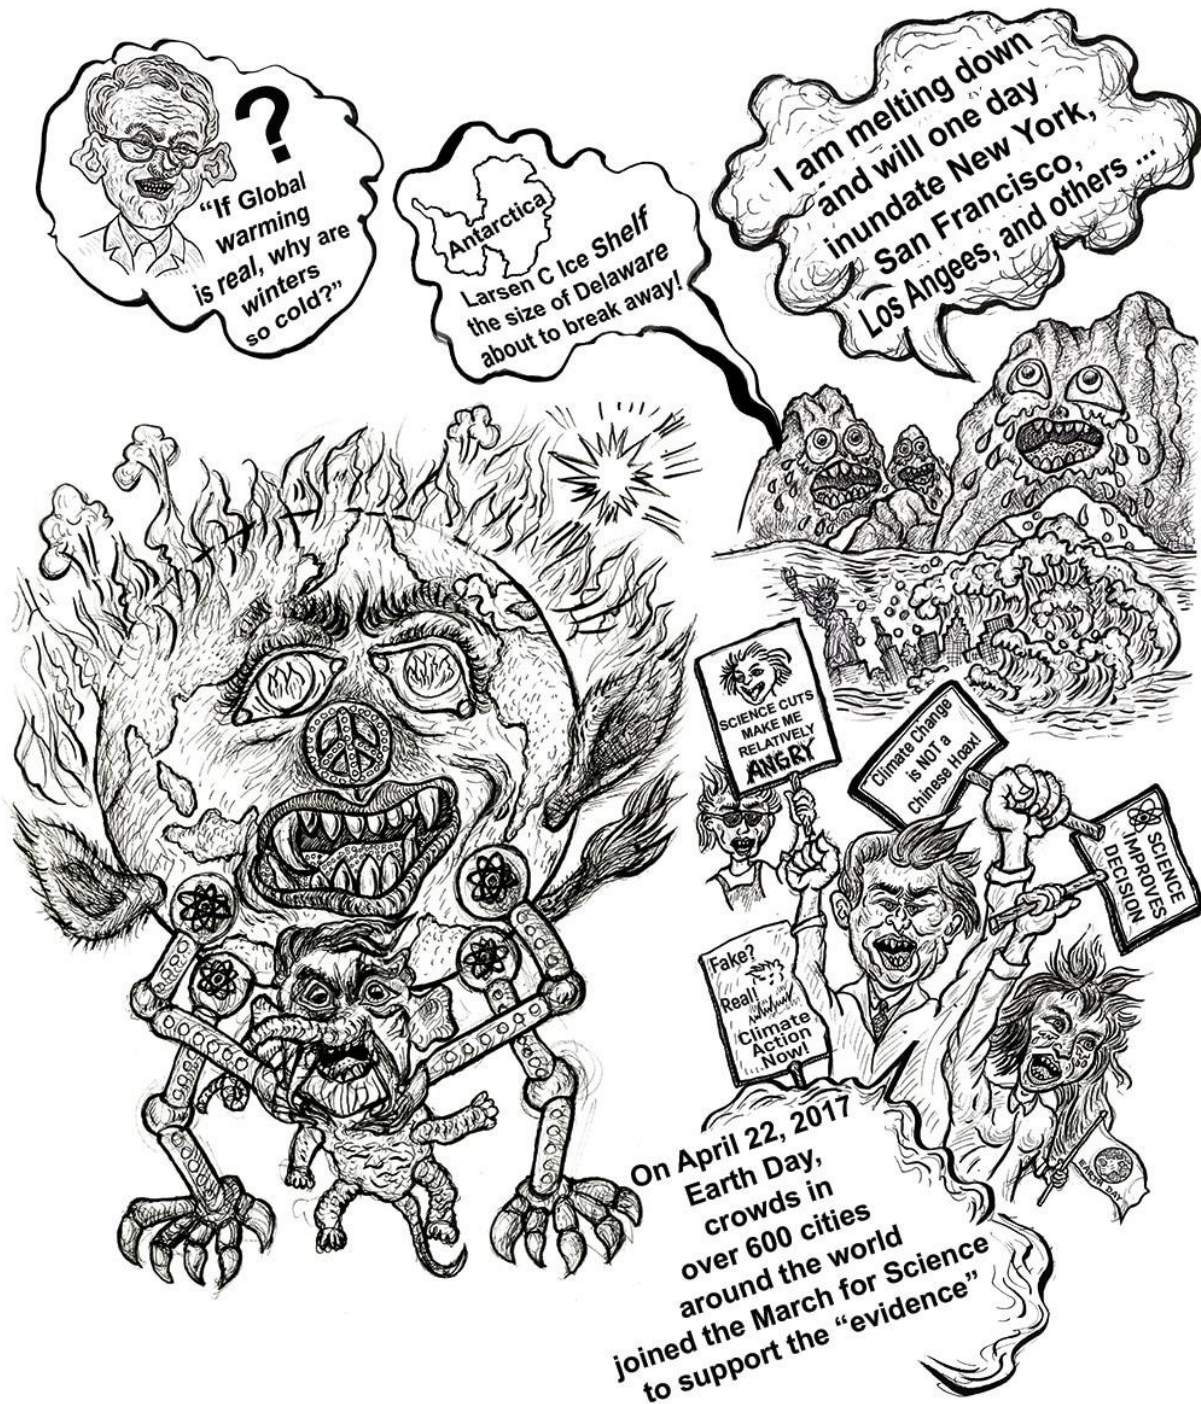 ?
“If Global
warming
is real, why are
winters
so cold?”
Antarctica
Larsen C Ice Shelf
the size of Delaware
about to break away!
I am melting down
and will one day
inundate New York,
San Francisco,
Los Angees, and others ...
SCIENCE CUTS
MAKE ME
RELATIVELY
ANGRY
Climate Change
is NOT a
Chinese Hoax!
SCIENCE
IMPROVES
DECISION
Fake?
Real!
Climate
Action
Now!
EARTH DAY
On April 22, 2017
Earth Day,
crowds in
over 600 cities
around the world
joined the March for Science
to support the “evidence”